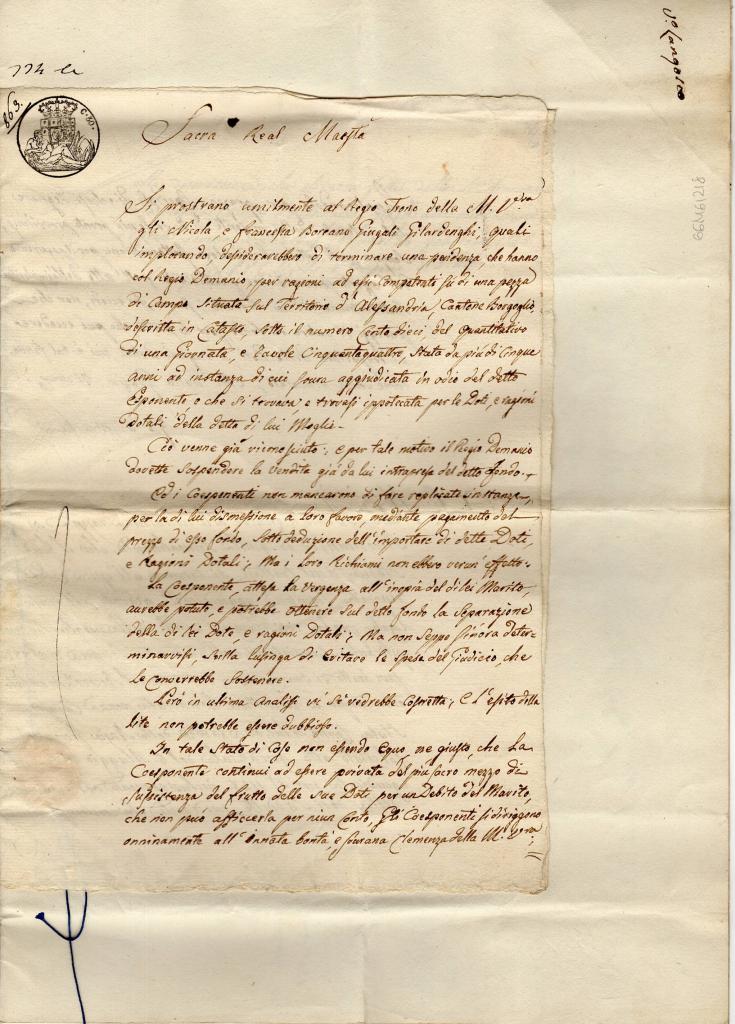 774
863.
C. 80.
Sacra Real Maestà
Si prostrano umilmente al Regio Trono della M. V.ra
gli Nicola, e Francesca Boreano Giugali Gilardenghi, quali
implorando, desiderarebbero di terminare una pendenza, che hanno
col Regio Demanio, per ragioni ad essi Competenti su di una pezza
di Campo Situata Sul Territorio d'Alessandria, Cantone Borgoglio,
descritta in Catasto, Sotto il numero Cento dieci del quantitativo
di una Giornata, e Tavole Cinquantaquattro, Stata da più di Cinque
anni ad instanza di cui sovra aggiudicata in odio del detto
Esponente e che si trovava, e trovasi ippotecata per le Doti, e ragioni
Dotali della detta di lui Moglie.
Ciò venne già riconosciuto; e per tale motivo il Regio Demanio
dovette Sospendere la vendita già da lui intrapresa del detto fondo.
Ed i Coesponenti non mancarono di fare replicate instanze,
per la di lui dismessione a Loro favore, mediante pagamento del
prezzo di esso fondo, Sotto deduzione dell'importare di dette Doti,
e Ragioni Dotali; Ma i Loro Richiami non ebbero verun' effetto.
La Coesponente, attesa la Vergenza all'inopia del di lei Marito,
avrebbe potuto, e potrebbe ottenere Sul detto fondo la Separazione
della di lei Dote, e ragioni Dotali; Ma non Seppe finora deter-
minarvisi, Sulla lusinga di Evitare le Spese del Giudicio, che
Le Converrebbe Sostenere.
Però in ultima Analisi vi Se vedrebbe Costretta; e l'esito della
lite non potrebbe essere dubbioso.
In tale Stato di Cose non essendo Equo, ne giusto, che La
Coesponente continui ad essere privata del più sacro mezzo di
Sussistenza del frutto delle Sue Doti per un Debito del Marito,
che non può afficierla per niun Conto, gli Coesponenti si diriggono
onninamente all'Innata bontà, e Sovrana Clemenza della M. V.ra;
G6M61218